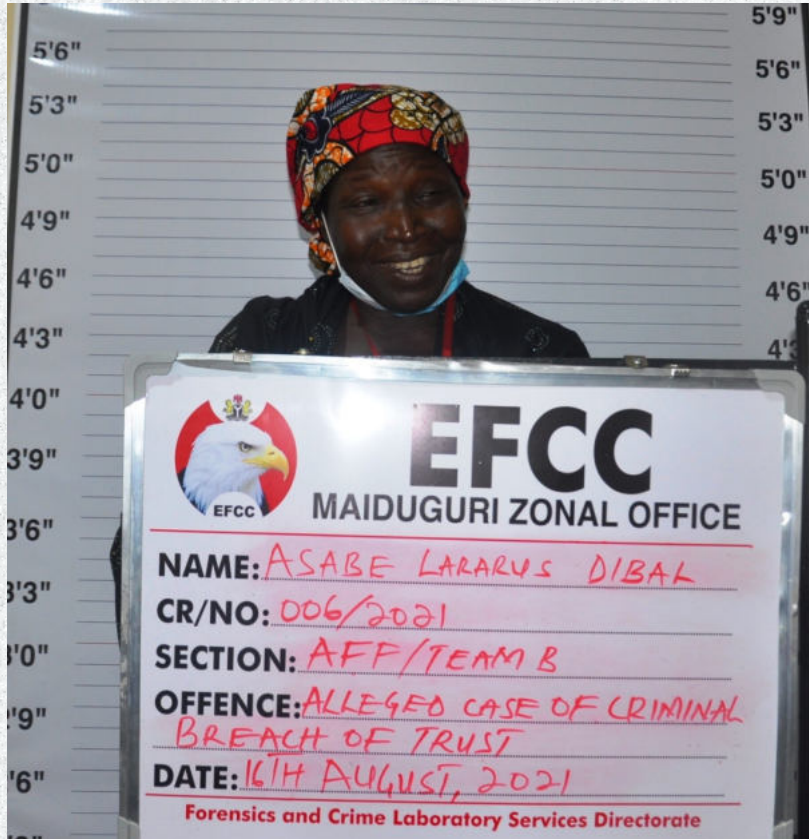 5'6"
5'3"
5'0"
4'9"
4'6"
4'3"
4'0"
3'9"
3'6"
3'3"
3'0"
2'9"
'6"
5'9"
5'6"
5'3"
5'0"
4'9"
4'6"
4'3
EFCC
EFCC
MAIDUGURI ZONAL OFFICE
NAME: ASABE LARARUS DIBAL
CR/NO: 006/2021
SECTION: AFF/TEAM B
OFFENCE: ALLEGED CASE OF CRIMINAL
BREACH OF TRUST
DATE: 16TH AUGUST, 2021
Forensics and Crime Laboratory Services Directorate